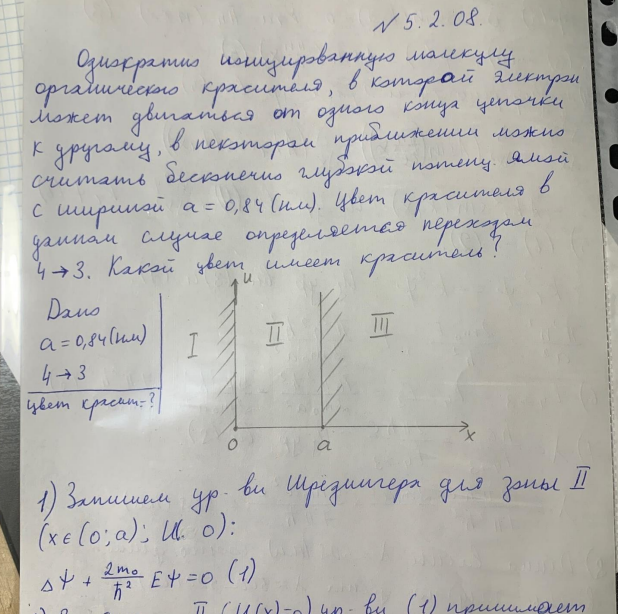 N 5.2.08.
Однократно ионизированную молекулу
органического красителя, в которой электрон
может двигаться от одного конца цепочки
к другому, в некотором приближении можно
считать бесконечно глубокой потенц. ямой
с шириной a = 0,84 (нм). Цвет красителя в
данном случае определяется переходом
4 → 3. Какой цвет имеет краситель?
Дано
a = 0,84 (нм)
4 → 3
цвет красит=?
U
I II III
0 a x
1) Запишем ур-ви Шредингера для зоны II
(x ∈ (0; a); U 0):
ΔΨ + 2m₀/ħ² EΨ = 0 (1)
II (U(x)=0) ур-ви (1) принимает